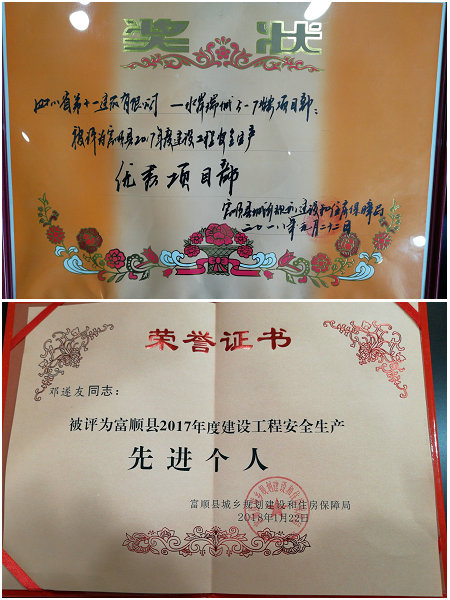 奖 状
四川省第十一建筑有限公司 一水岸瑞城5-7栋项目部：
被评为富顺县2017年度建设工程安全生产
优秀项目部
富顺县城乡规划建设和住房保障局
二〇一八年元月二十二日
荣誉证书
邓遂友同志：
被评为富顺县2017年度建设工程安全生产
先进个人
富顺县城乡规划建设和住房保障局
2018年1月22日